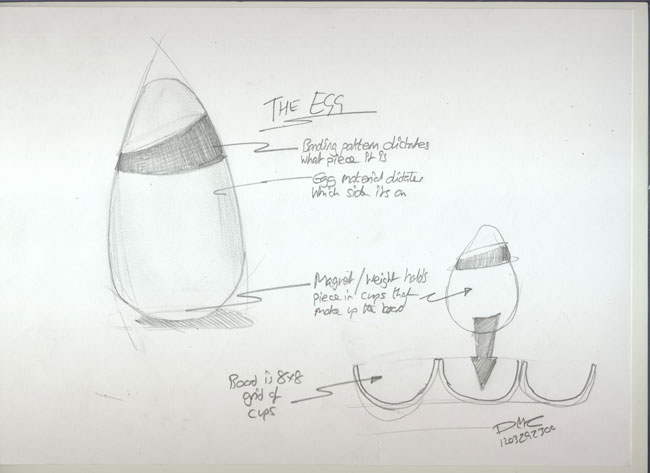 THE EGG
Banding pattern dictates
what piece it is
Egg material dictates
which side its on
Magnet / Weight holds
piece in cups that
make up the board
Board is 8x8
grid of
cups
DMC